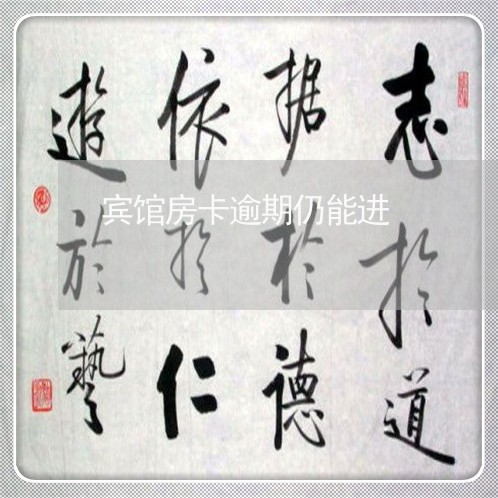 志於道
据於德
依於仁
遊於藝
宾馆房卡逾期仍能进